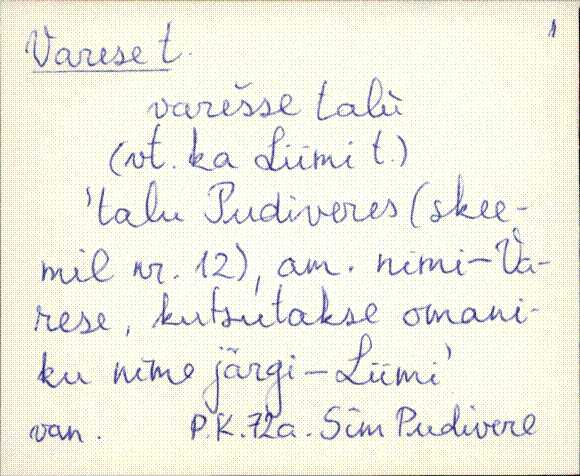 1
Varese t.
varèsse talù
(vt. ka Liimi t.)
'talu Pudiveres (skee-
mil nr. 12), am. nimi-Va-
rese, kutsutakse omani-
ku nime järgi-Liimi'
van. P.K. 72a. Sim Pudivere